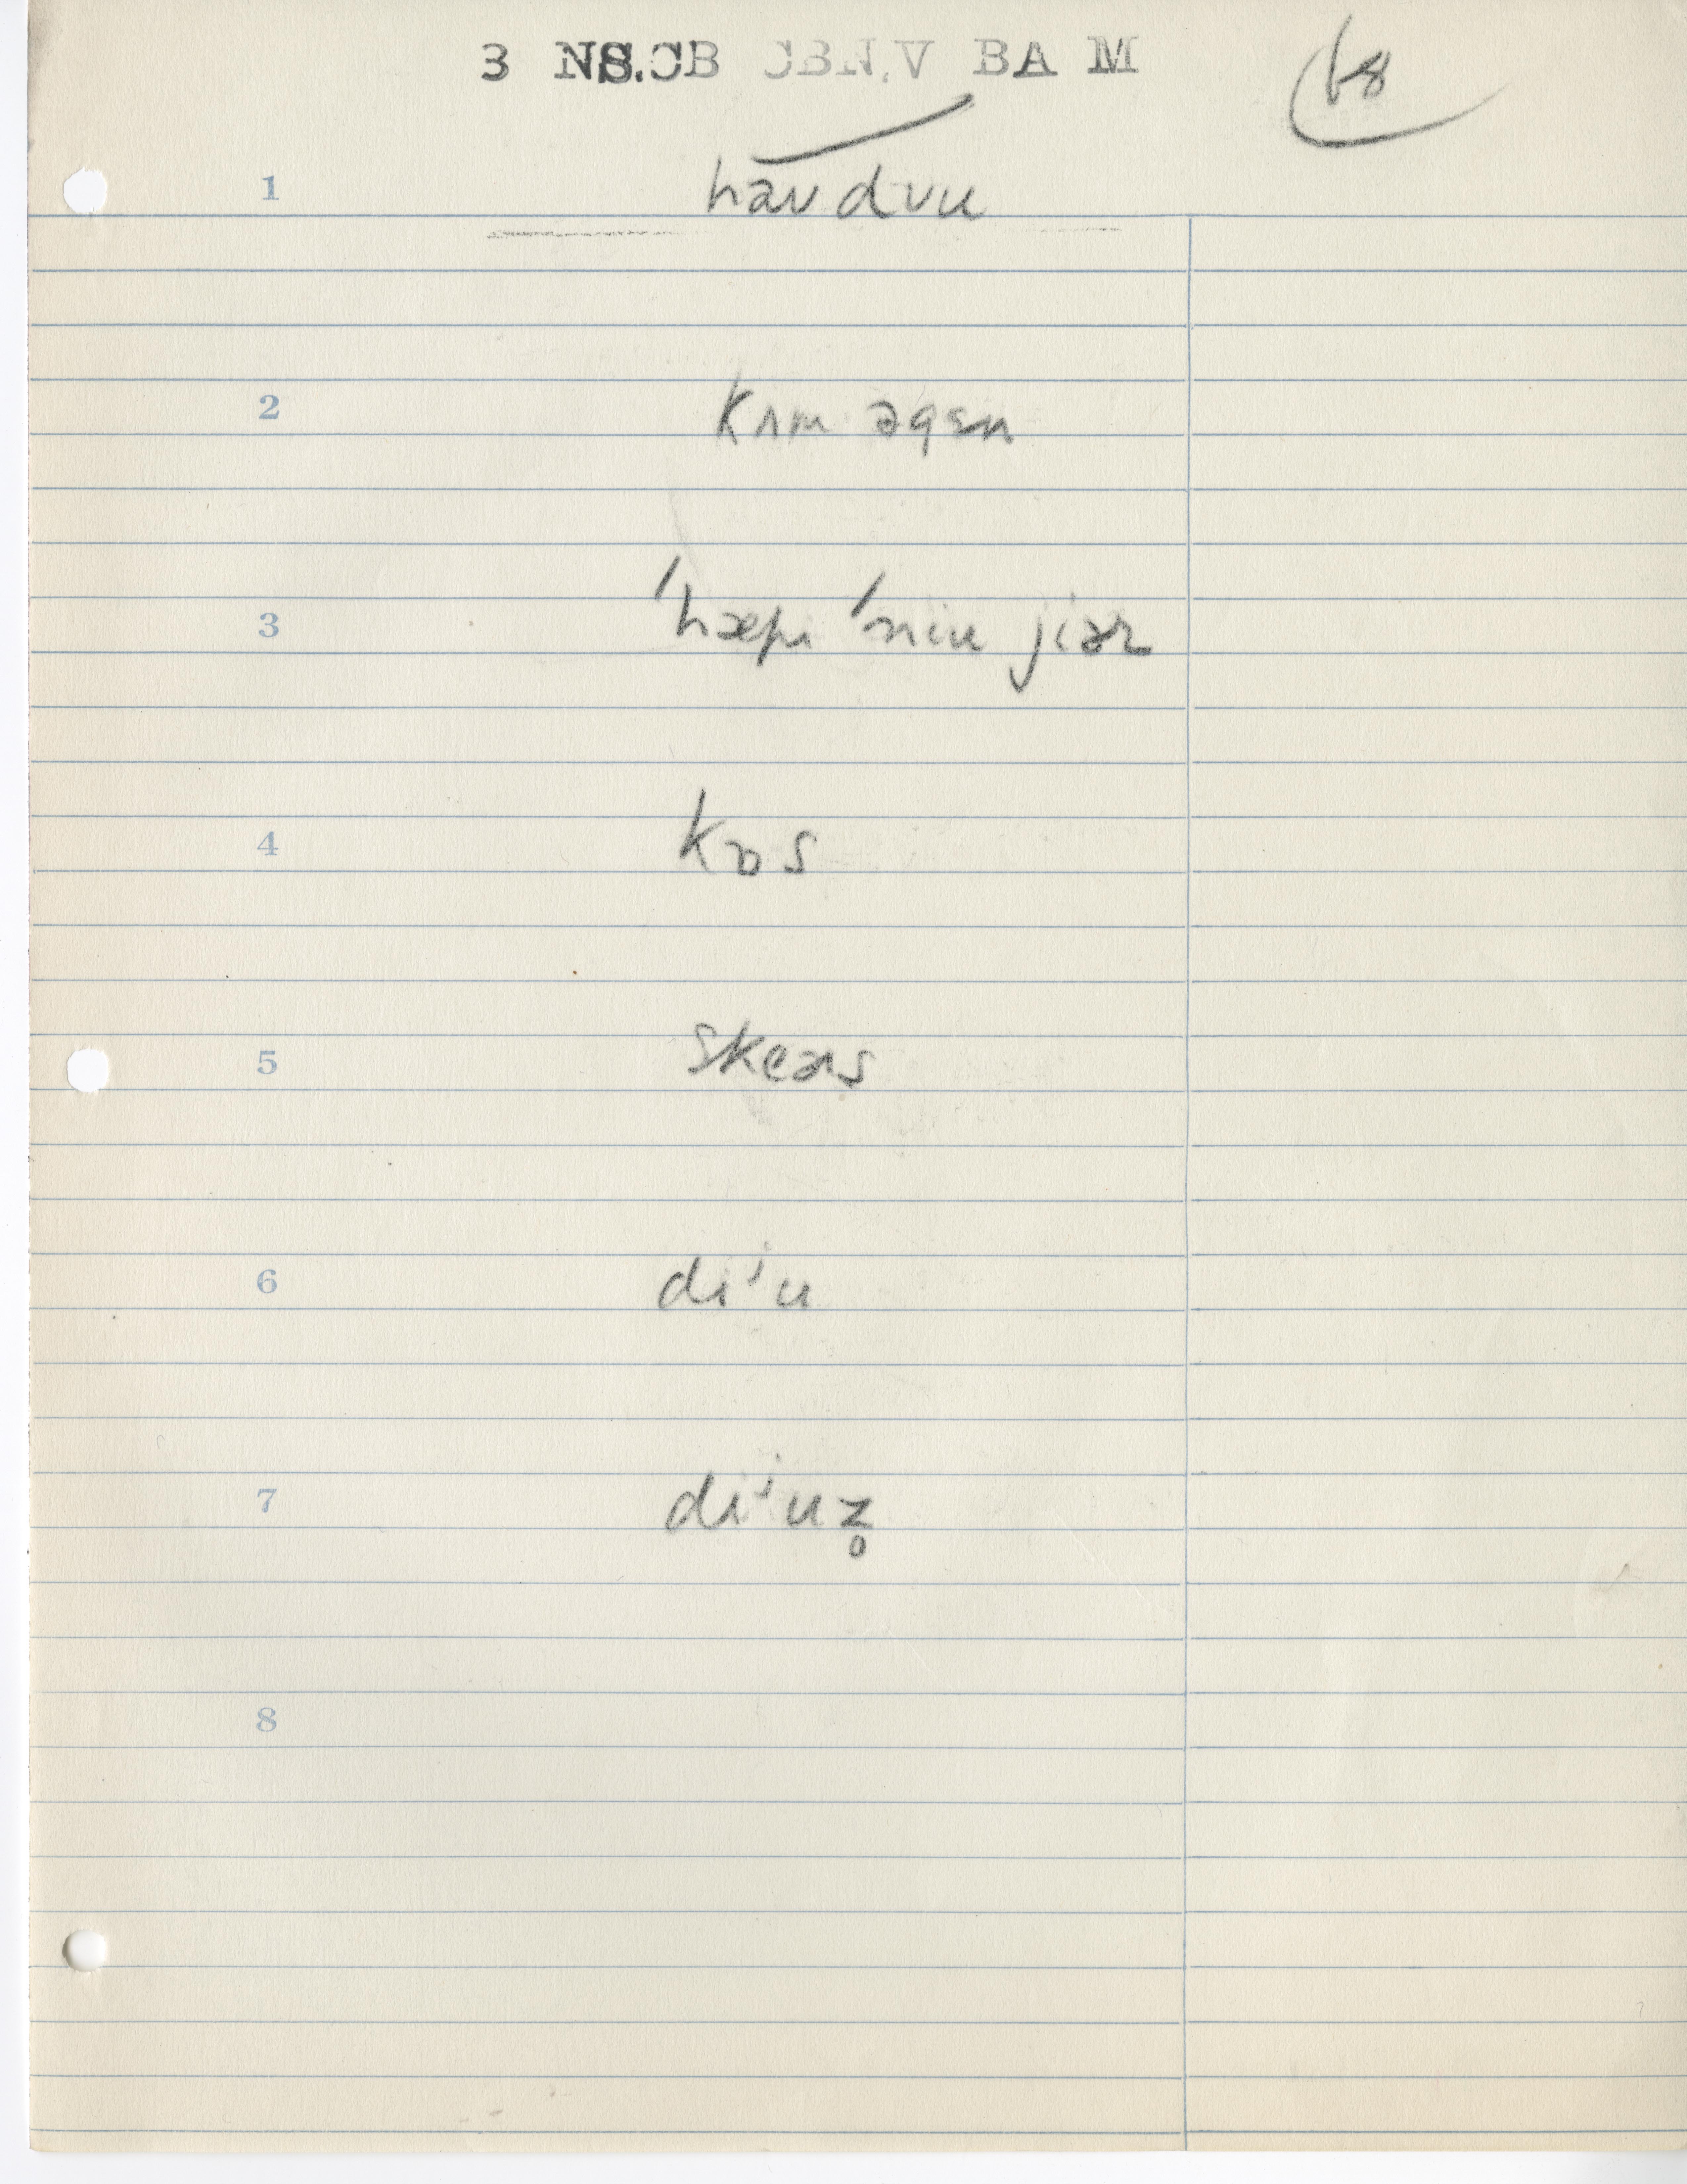 3 NS.CB CBN.V BA M
68
1 haʊ dʊu
2 kʌm əgɛn
3 ˈhæpɪ ˈniu jiər
4 kɒs
5 skeəs
6 dɪˈu
7 dɪˈuz̥
8